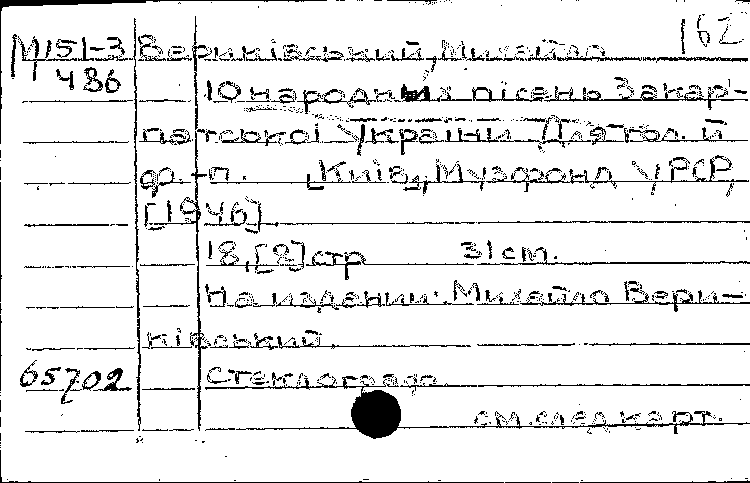 162
М151-3 Вериківський, Михайло
486 10 народных пісень Закар-
патської України. Для гол. й
ф.-п. [Київ], Музфонд УРСР,
[1946].
18,[2] стр 31 см.
На издании: Михайло Вери-
ківський.
65702 Стеклограф.
см. след карт.